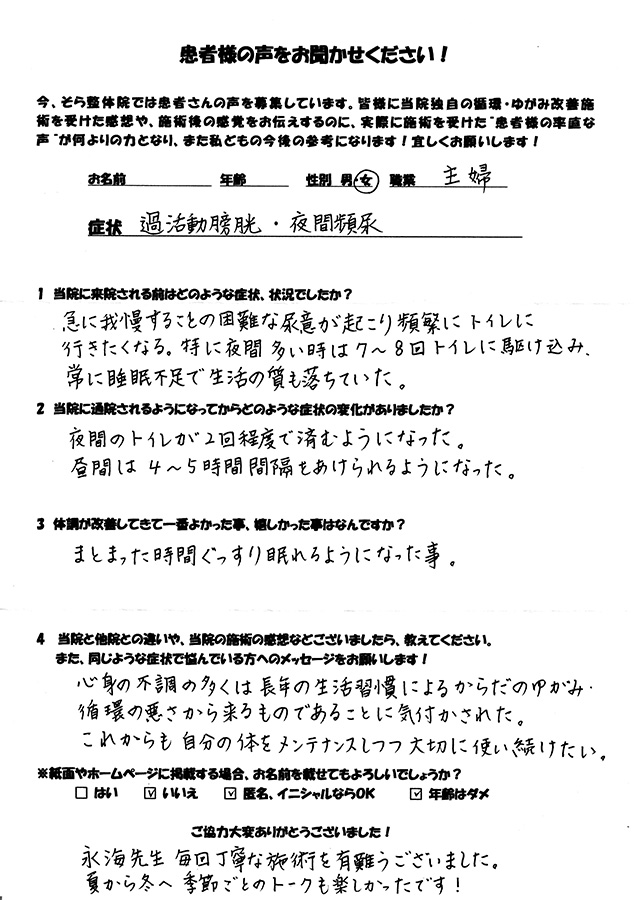 患者様の声をお聞かせください！
今、そら整体院では患者さんの声を募集しています。皆様に当院独自の循環・ゆがみ改善施
術を受けた感想や、施術後の感覚をお伝えするのに、実際に施術を受けた“患者様の率直な
声”が何よりの力となり、また私どもの今後の参考になります！宜しくお願いします！
お名前 年齢 性別 男・女 職業 主婦
症状 過活動膀胱・夜間頻尿
1 当院に来院される前はどのような症状、状況でしたか？
急に我慢することの困難な尿意が起こり頻繁にトイレに
行きたくなる。特に夜間多い時は7～8回トイレに駆け込み、
常に睡眠不足で生活の質も落ちていた。
2 当院に通院されるようになってからどのような症状の変化がありましたか？
夜間のトイレが2回程度で済むようになった。
昼間は4～5時間間隔をあけられるようになった。
3 体調が改善してきて一番よかった事、嬉しかった事はなんですか？
まとまった時間ぐっすり眠れるようになった事。
4 当院と他院との違いや、当院の施術の感想などございましたら、教えてください。
また、同じような症状で悩んでいる方へのメッセージをお願いします！
心身の不調の多くは長年の生活習慣によるからだのゆがみ・
循環の悪さから来るものであることに気付かされた。
これからも自分の体をメンテナンスしつつ大切に使い続けたい。
※紙面やホームページに掲載する場合、お名前を載せてもよろしいでしょうか？
□ はい ☑ いいえ ☑ 匿名、イニシャルならOK ☑ 年齢はダメ
ご協力大変ありがとうございました！
永海先生 毎回丁寧な施術を有難うございました。
夏から冬へ 季節ごとのトークも楽しかったです！